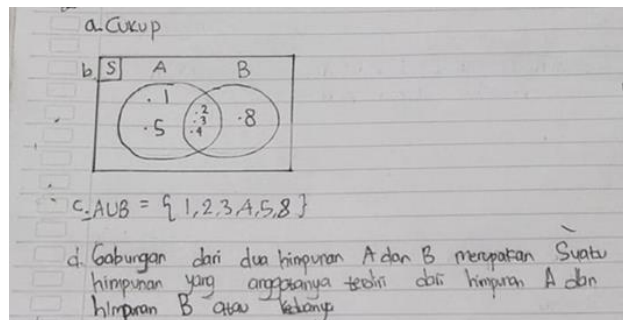 a. Cukup
b. S A B
. 1 . 2 . 3 . 4 . 5 . 8
c. AUB = { 1, 2, 3, 4, 5, 8 }
d. Gabungan dari dua himpunan A dan B merupakan Suatu
himpunan yang anggotanya terdiri dari himpunan A dan
himpunan B atau keduanya